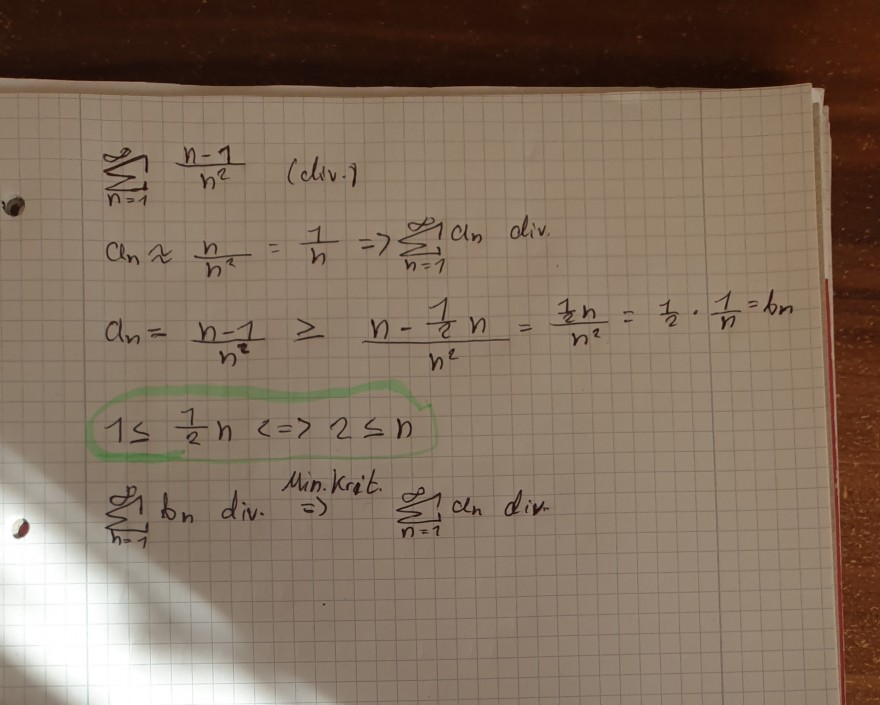 ∞∑n=1 (n-1)/n² (div.)
an ≈ n/n² = 1/n => ∞∑n=1 an div.
an = (n-1)/n² ≥ (n - 1/2 n)/n² = (1/2 n)/n² = 1/2 · 1/n = bn
1 ≤ 1/2 n <=> 2 ≤ n
∞∑n=1 bn div. Min.Krit. => ∞∑n=1 an div.